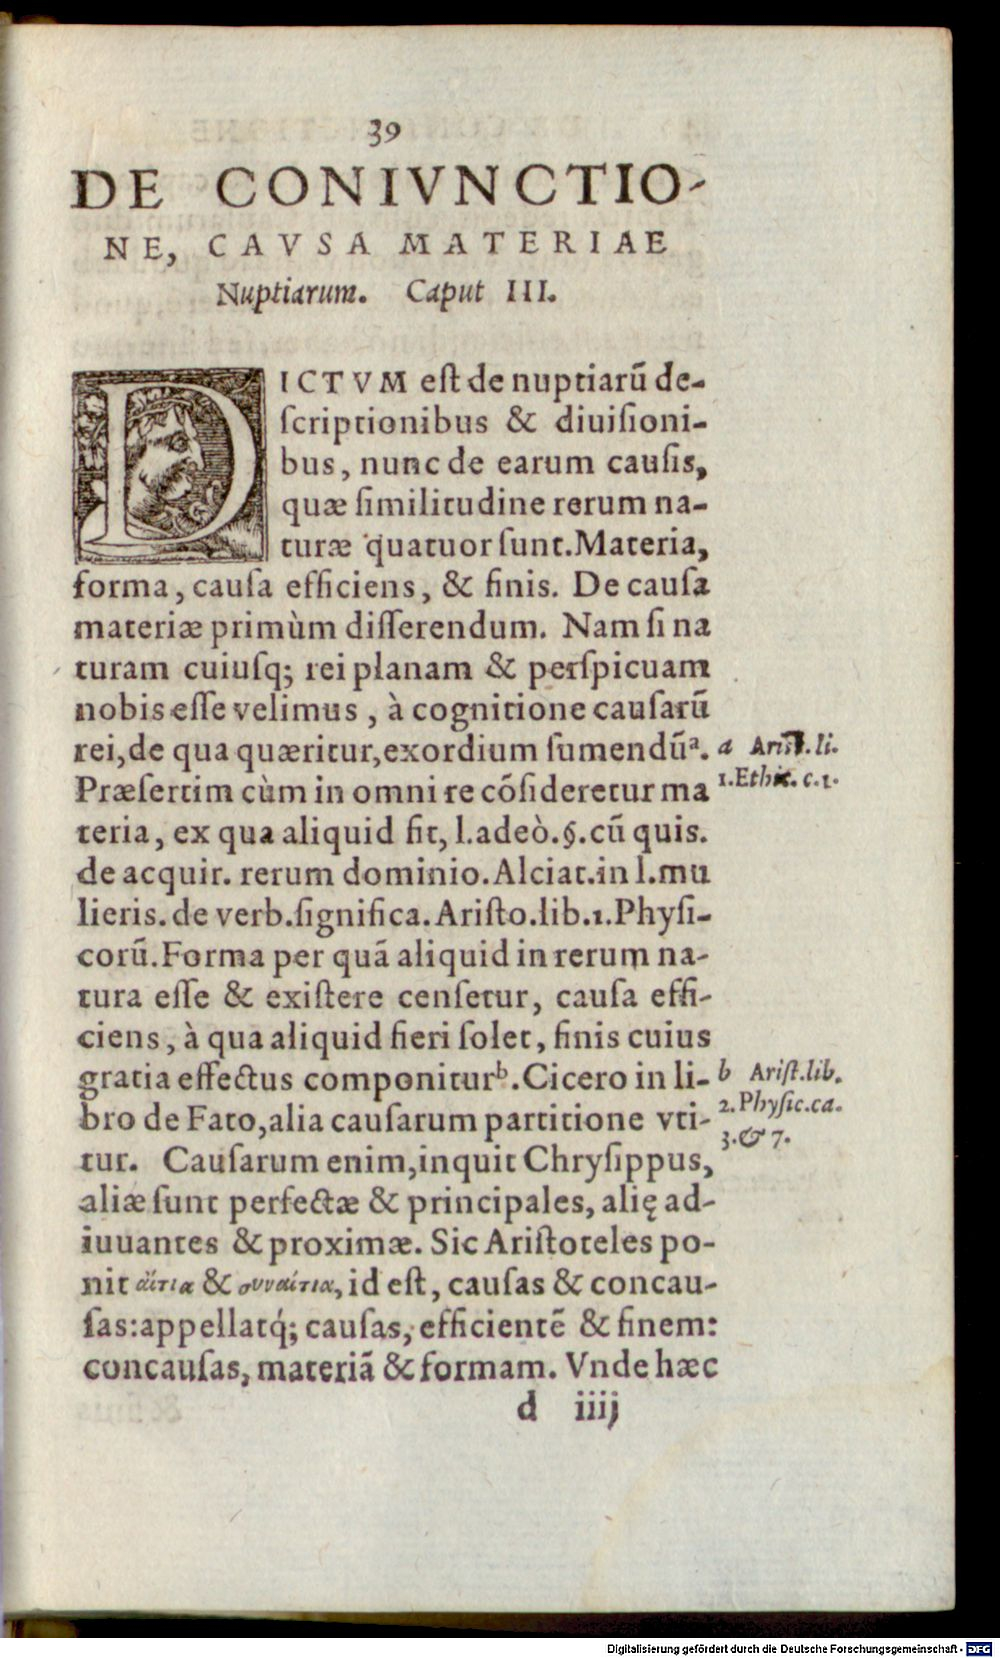 39
DE CONIVNCTIO-
NE, CAVSA MATERIAE
Nuptiarum. Caput III.
DICTVM est de nuptiarū de-
scriptionibus & diuisioni-
bus, nunc de earum causis,
quæ similitudine rerum na-
turæ quatuor sunt. Materia,
forma, causa efficiens, & finis. De causa
materiæ primùm disserendum. Nam si na
turam cuiusq; rei planam & perspicuam
nobis esse velimus, à cognitione causarū
rei, de qua quæritur, exordium sumendūᵃ.
a Arist. li.
1. Ethic. c. 1.
Præsertim cùm in omni re cōsideretur ma
teria, ex qua aliquid fit, l. adeò. §. cū quis.
de acquir. rerum dominio. Alciat. in l. mu
lieris. de verb. significa. Aristo. lib. 1. Physi-
corū. Forma per quā aliquid in rerum na-
tura esse & existere censetur, causa effi-
ciens, à qua aliquid fieri solet, finis cuius
gratia effectus componiturᵇ. Cicero in li-
b Arist. lib.
2. Physic. ca.
3. & 7.
bro de Fato, alia causarum partitione vti-
tur. Causarum enim, inquit Chrysippus,
aliæ sunt perfectæ & principales, alię ad-
iuuantes & proximæ. Sic Aristoteles po-
nit αἴτια & συναίτια, id est, causas & concau-
sas: appellatq́; causas, efficientē & finem:
concausas, materiā & formam. Vnde hæc
d iiij
Digitalisierung gefördert durch die Deutsche Forschungsgemeinschaft - DFG